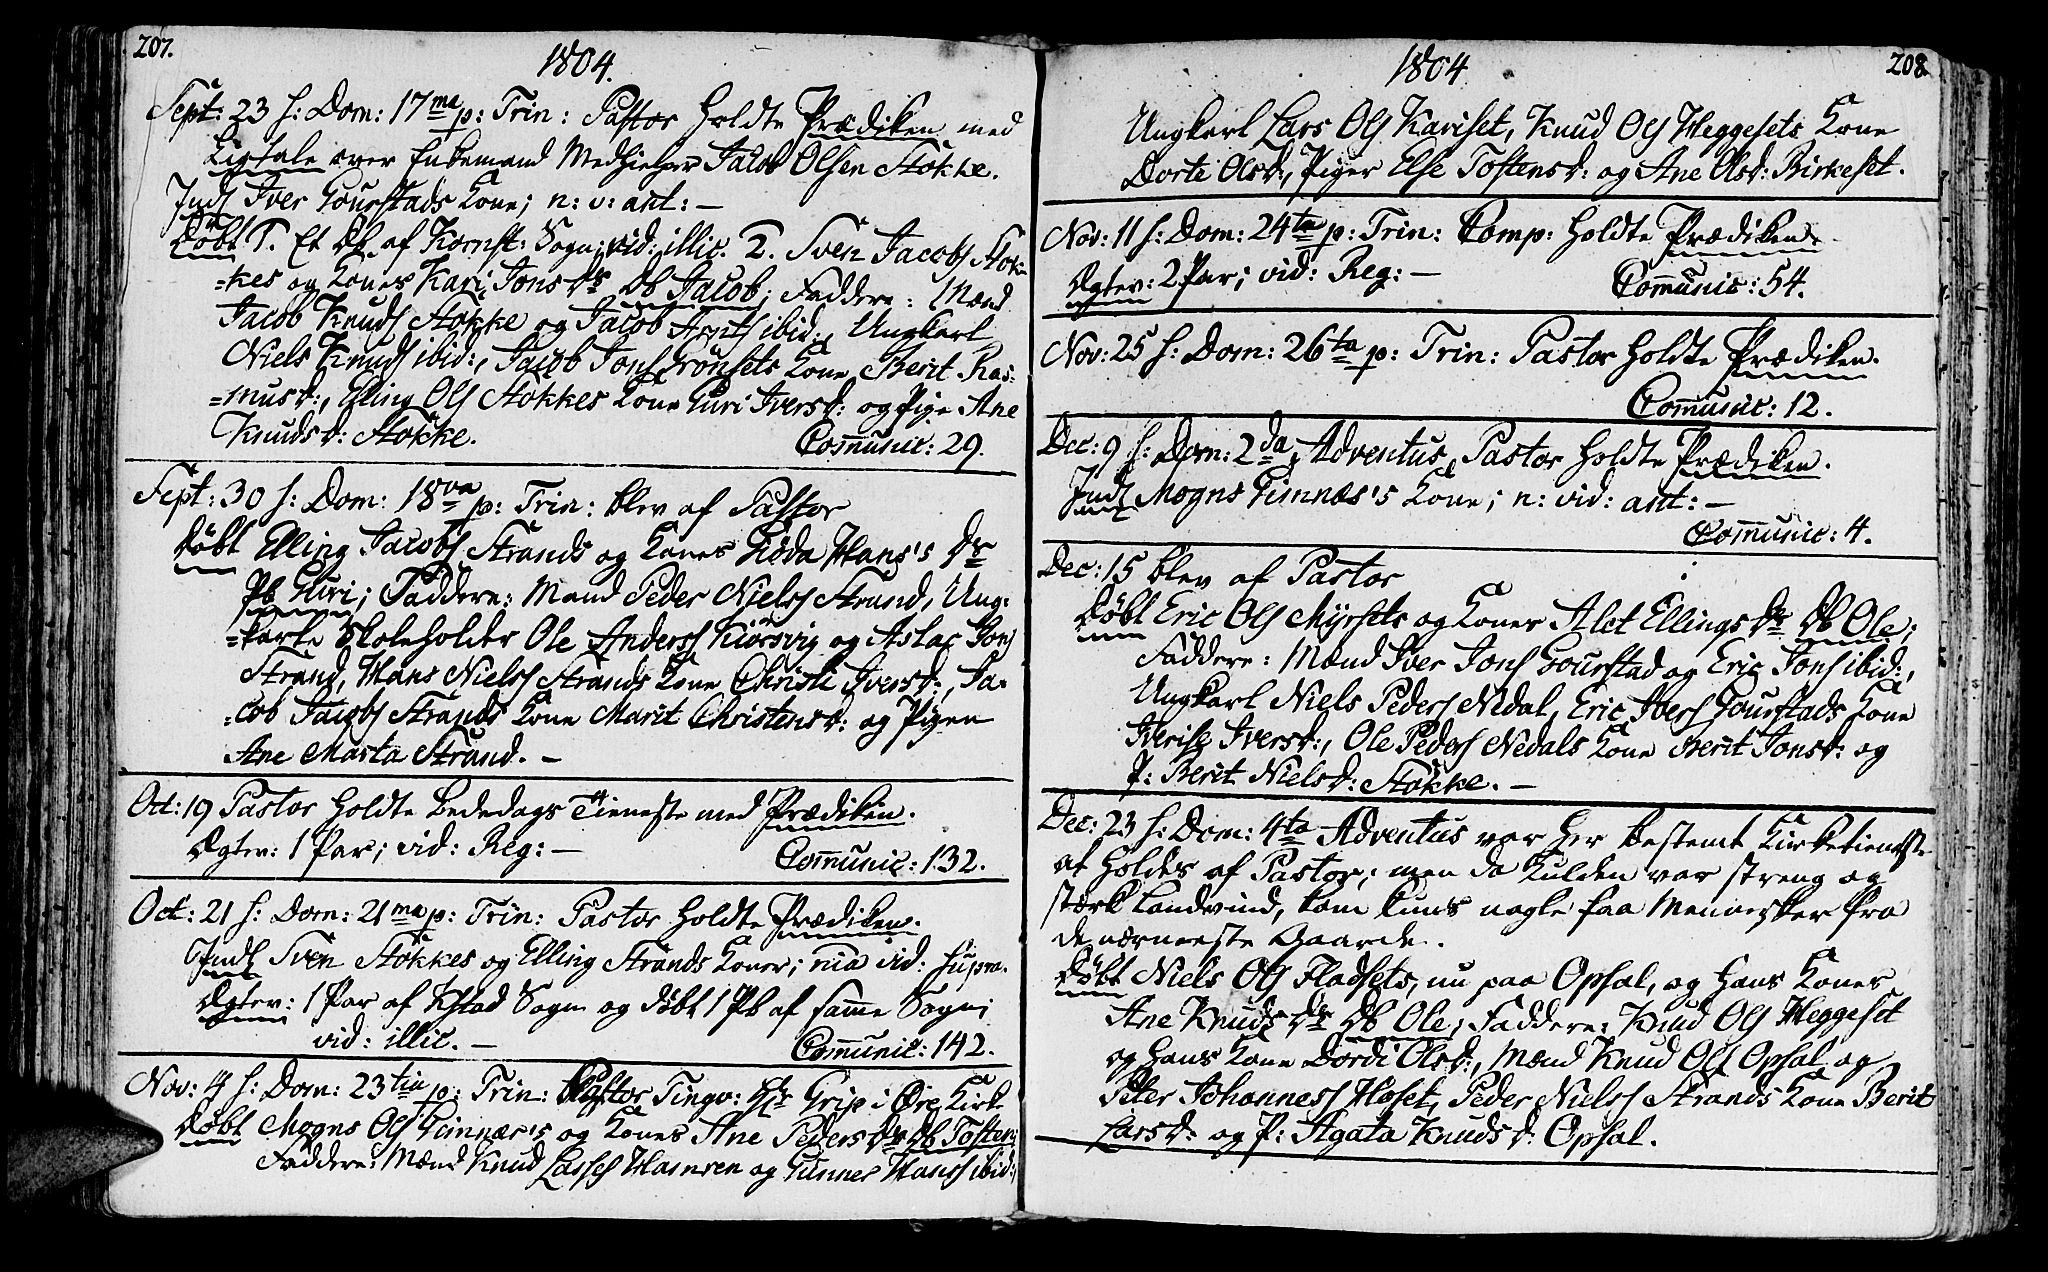 207.
1804.
Sept: 23 h: Dom: 17ma p: Trin: Pastor holdte Prædiken med
Ligtale over Enkemand Medhielper Jacob Olsen Stokke.
Indl Iver Gourstads Kone; n: v: ant: —
Døbt 1. Et Db. af Kornst: Sogn; vid: illic. 2. Sven Jacobs Stok-
=kes og Kones Kari Jonsdr Db Jacob; Faddere: Mænd
Jacob Knuds Stokke og Jacob Arnts ibid:, Ungkarl
Niels Knuds ibid:, Jacob Jons Grønsets Kone Berit Ras-
=musd:, Elling Ols Stokkes Kone Guri Iversd: og Pige Ane
Knudsd: Stokke. Communic: 29.
Sept: 30 h: Dom: 18va p: Trin: blev af Pastor
Døbt Elling Jacobs Strands og Kones Giøda Hans's Dr
Pb Guri; Faddere: Mand Peder Niels Strand, Ung-
=karle Skoleholder Ole Anders Kiorsvig og Aslac Jons
Strand, Hans Niels Strands Kone Christi Iversd:, Ja-
=cob Jacobs Strands Kone Marit Christensd: og Pigen
Ane Marta Strand. —
Oct: 19 Pastor holdte Bededags Tieneste med Prædiken.
Ægtev: 1 Par; vid: Reg: — Communic: 132.
Oct: 21 h: Dom: 21ma p: Trin: Pastor holdte Prædiken.
Indl Sven Stokkes og Elling Strands Koner; vid: supra.
Ægtev: 1 Par af Qstad Sogn og døbt 1 Pb af samme Sogn;
vid: illic. — Communic: 142.
Nov: 4 h: Dom: 23tia p: Trin: Pastor Tingv: Hr Grip i Øre Kirk
Døbt Mogns Ols Gimnæs's og Kones Ane Peders Dr Db Tosten;
Faddere: Mænd Knud Lasses Hamren og Gunner Hans ibid:,
1804
208.
Ungkarl Lars Ols Kariset, Knud Ols Heggesets Kone
Dorte Olsd:, Piger Else Tostensd: og Ane Olsd: Birkeset.
Nov: 11 h: Dom: 24ta p: Trin: Comp: holdte Prædiken.
Ægtev: 2 Par; vid: Reg: — Communic: 54.
Nov: 25 h: Dom: 26ta p: Trin: Pastor holdte Prædiken.
Communic: 12.
Dec: 9 h: Dom: 2da Adventus Pastor holdte Prædiken.
Indl Mogns Gimnæs's Kone; n: vid: ant: —
Communic: 4.
Dec: 15 blev af Pastor
Døbt Eric Ols Myrsets og Kones Alet Ellings Dr Db Ole;
Faddere: Mænd Iver Jons Gourstad og Eric Jons ibid:,
Ungkarl Niels Peders Nedal, Eric Ivers Gourstads Kone
Iversd:, Ole Peders Nedals Kone Berit Jonsd: og
P: Berit Nielsd: Stokke. —
Dec: 23 h: Dom: 4ta Adventus var her bestemt Kirketieneste
at holdes af Pastor; men da Kulden var streng og
stærk Landvind, kom kuns nogle faa Mennesker fra
de nærmeste Gaarde.
Døbt Niels Ols Fladsets, nu paa Opsal, og hans Kones
Ane Knuds Dr Db Ole; Faddere: Knud Ols Heggeset
og hans Kone Dordi Olsd:, Mænd Knud Ols Opsal og
Peter Johannes Høset, Peder Niels Strands Kone Berit
Larsd: og P: Agata Knudsd: Opsal.